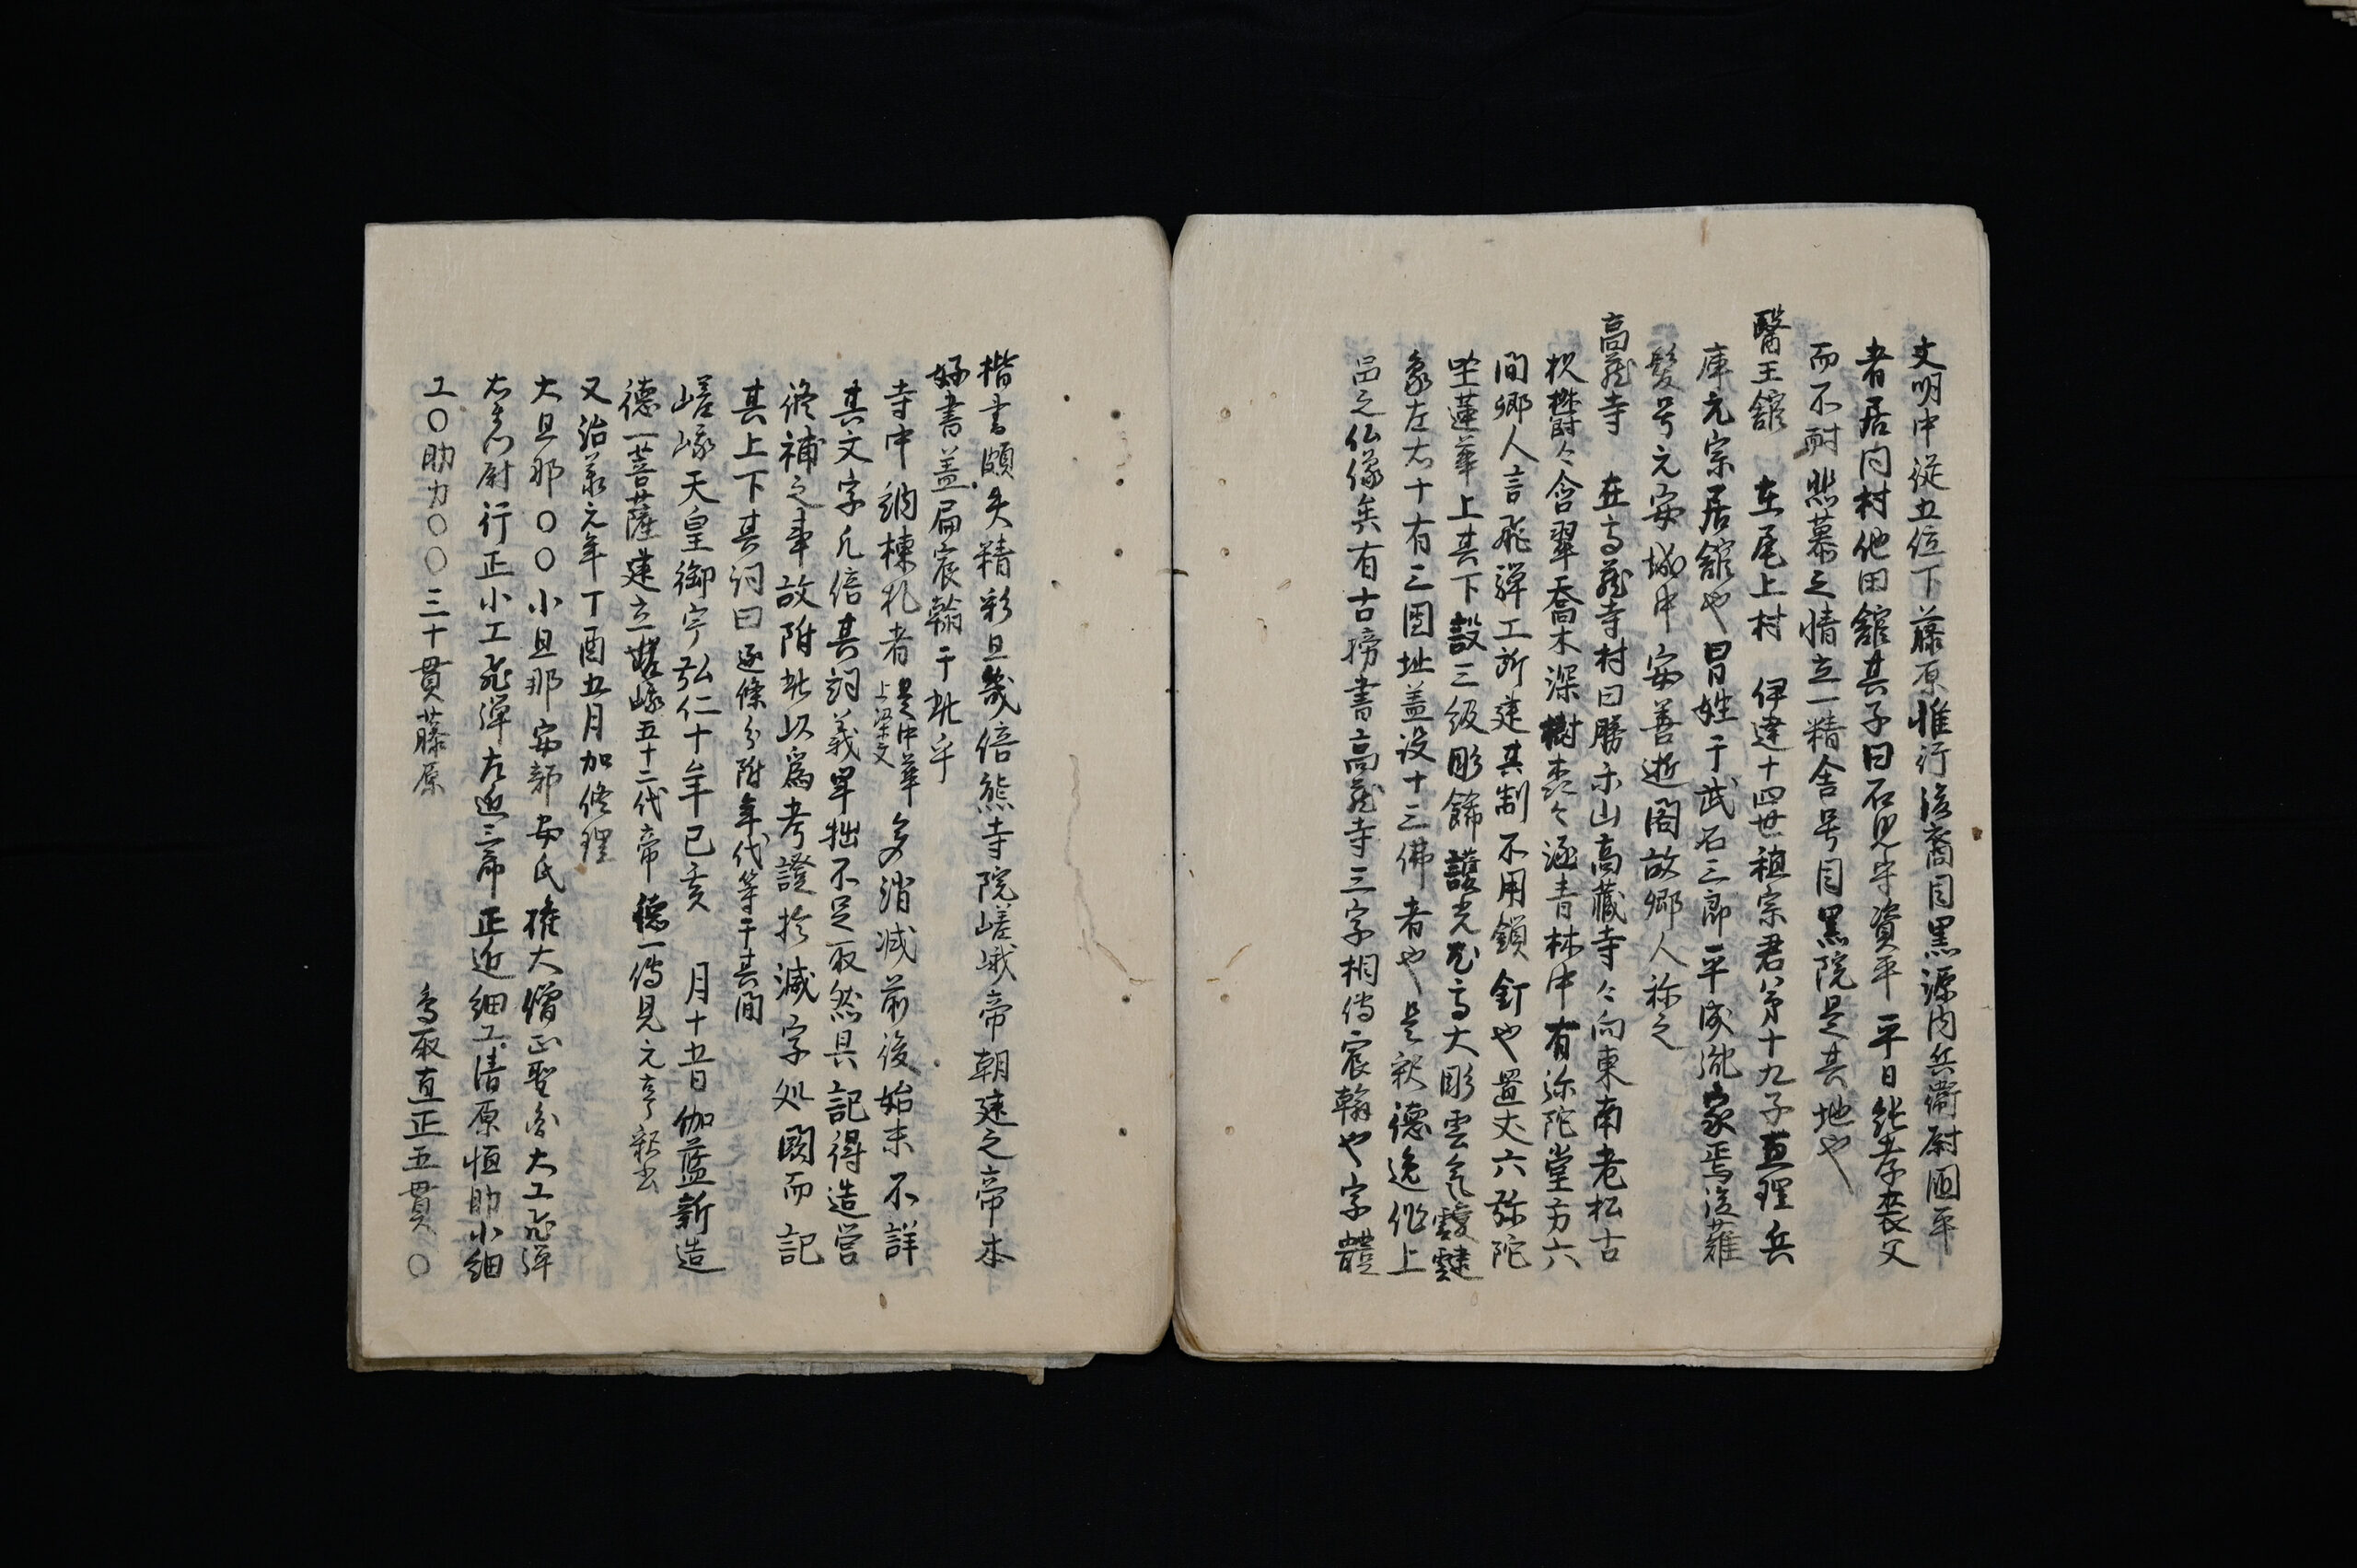 文明中従五位下藤原惟行後裔目黒源内兵衛尉國平
者居内村他田舘其子曰石見守資平平日能孝喪父
而不耐悲慕之情立一精舎号目黒院是其地也
醫王舘　在尾上村　伊達十四世稙宗君第十九子亘理兵
庫元宗居舘也冒姓于武石三郎平成胤家焉後薙
髪号元安城中安善逝閣故郷人称之
高藏寺　在高藏寺村曰勝示山高藏寺々向東南老松古
杉欝々含翠喬木深樹森々涵青林中有弥陀堂方六
間郷人言飛彈工所建其制不用鎖釘也置丈六弥陀
坐蓮華上其下設三級彫餝護光尤高大彫雲氣靉靆
象左右十有三圓址盖設十三佛者也是釈徳逸作上
品之仏像矣有古牓書高藏寺三字相傳宸翰也字體
楷書頗失精彩且幾倍熊寺院嵯峨帝朝建之帝本
好書盖扁宸翰于此乎
寺中納棟札者是中華上梁文多消滅前後始末不詳
其文字凡倍其詞義卑拙不足取然具記得造営
修補之事故附此以爲考證於滅字処闕而記
其上下其詞曰逐條分附年代等于其間
嵯峨天皇御宇弘仁十年己亥　月十五日伽藍新造
徳一菩薩建立嵯峨五十二代帝徳一傳見元亨釈書
又治承元年丁酉五月加修理
大旦那〇〇小旦那安部安氏権大僧正聖金大工飛彈
右衛門尉行正小工飛彈左近三郎正近細工清原恒助小細
工〇助力〇〇三十貫藤原　　鳥取直正五貫〇